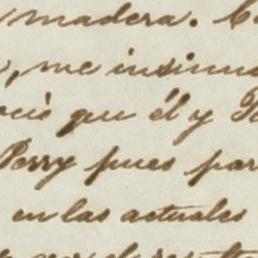 madera.
, me insinu
que él y
Perry pues par
en las actuales